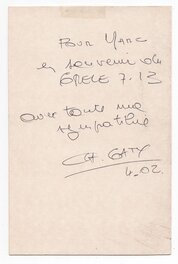 POUR MARC
en souvenir du
GRELE 7.13
avec toute ma
sympathie
CH. GATY
4.02.